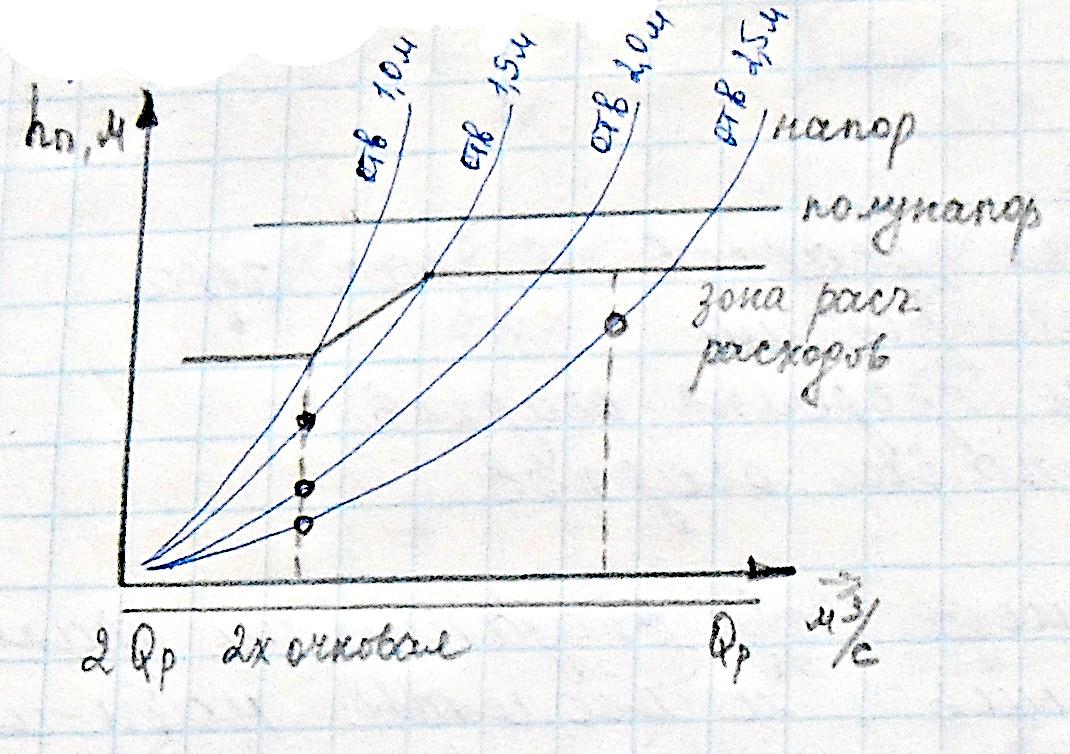 hп, м
отв 1,0м
отв 1,5м
отв 2,0м
отв 2,5м
напор
полунапор
зона расч.
расходов
м³/с
2 Qр 2х очковая Qр